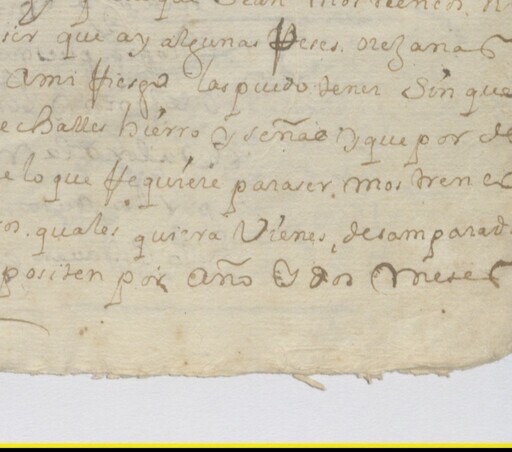 que sean mostrencos. n
sier que ay algunas Reses. orejanas
Ami Riesgo las puedo tener Sin que
echalles hierro y señao y que por de
e lo que Requiere para ser. mostrencs
ros. quales quiera Vienes, desamparad
positen por Año y dos meses